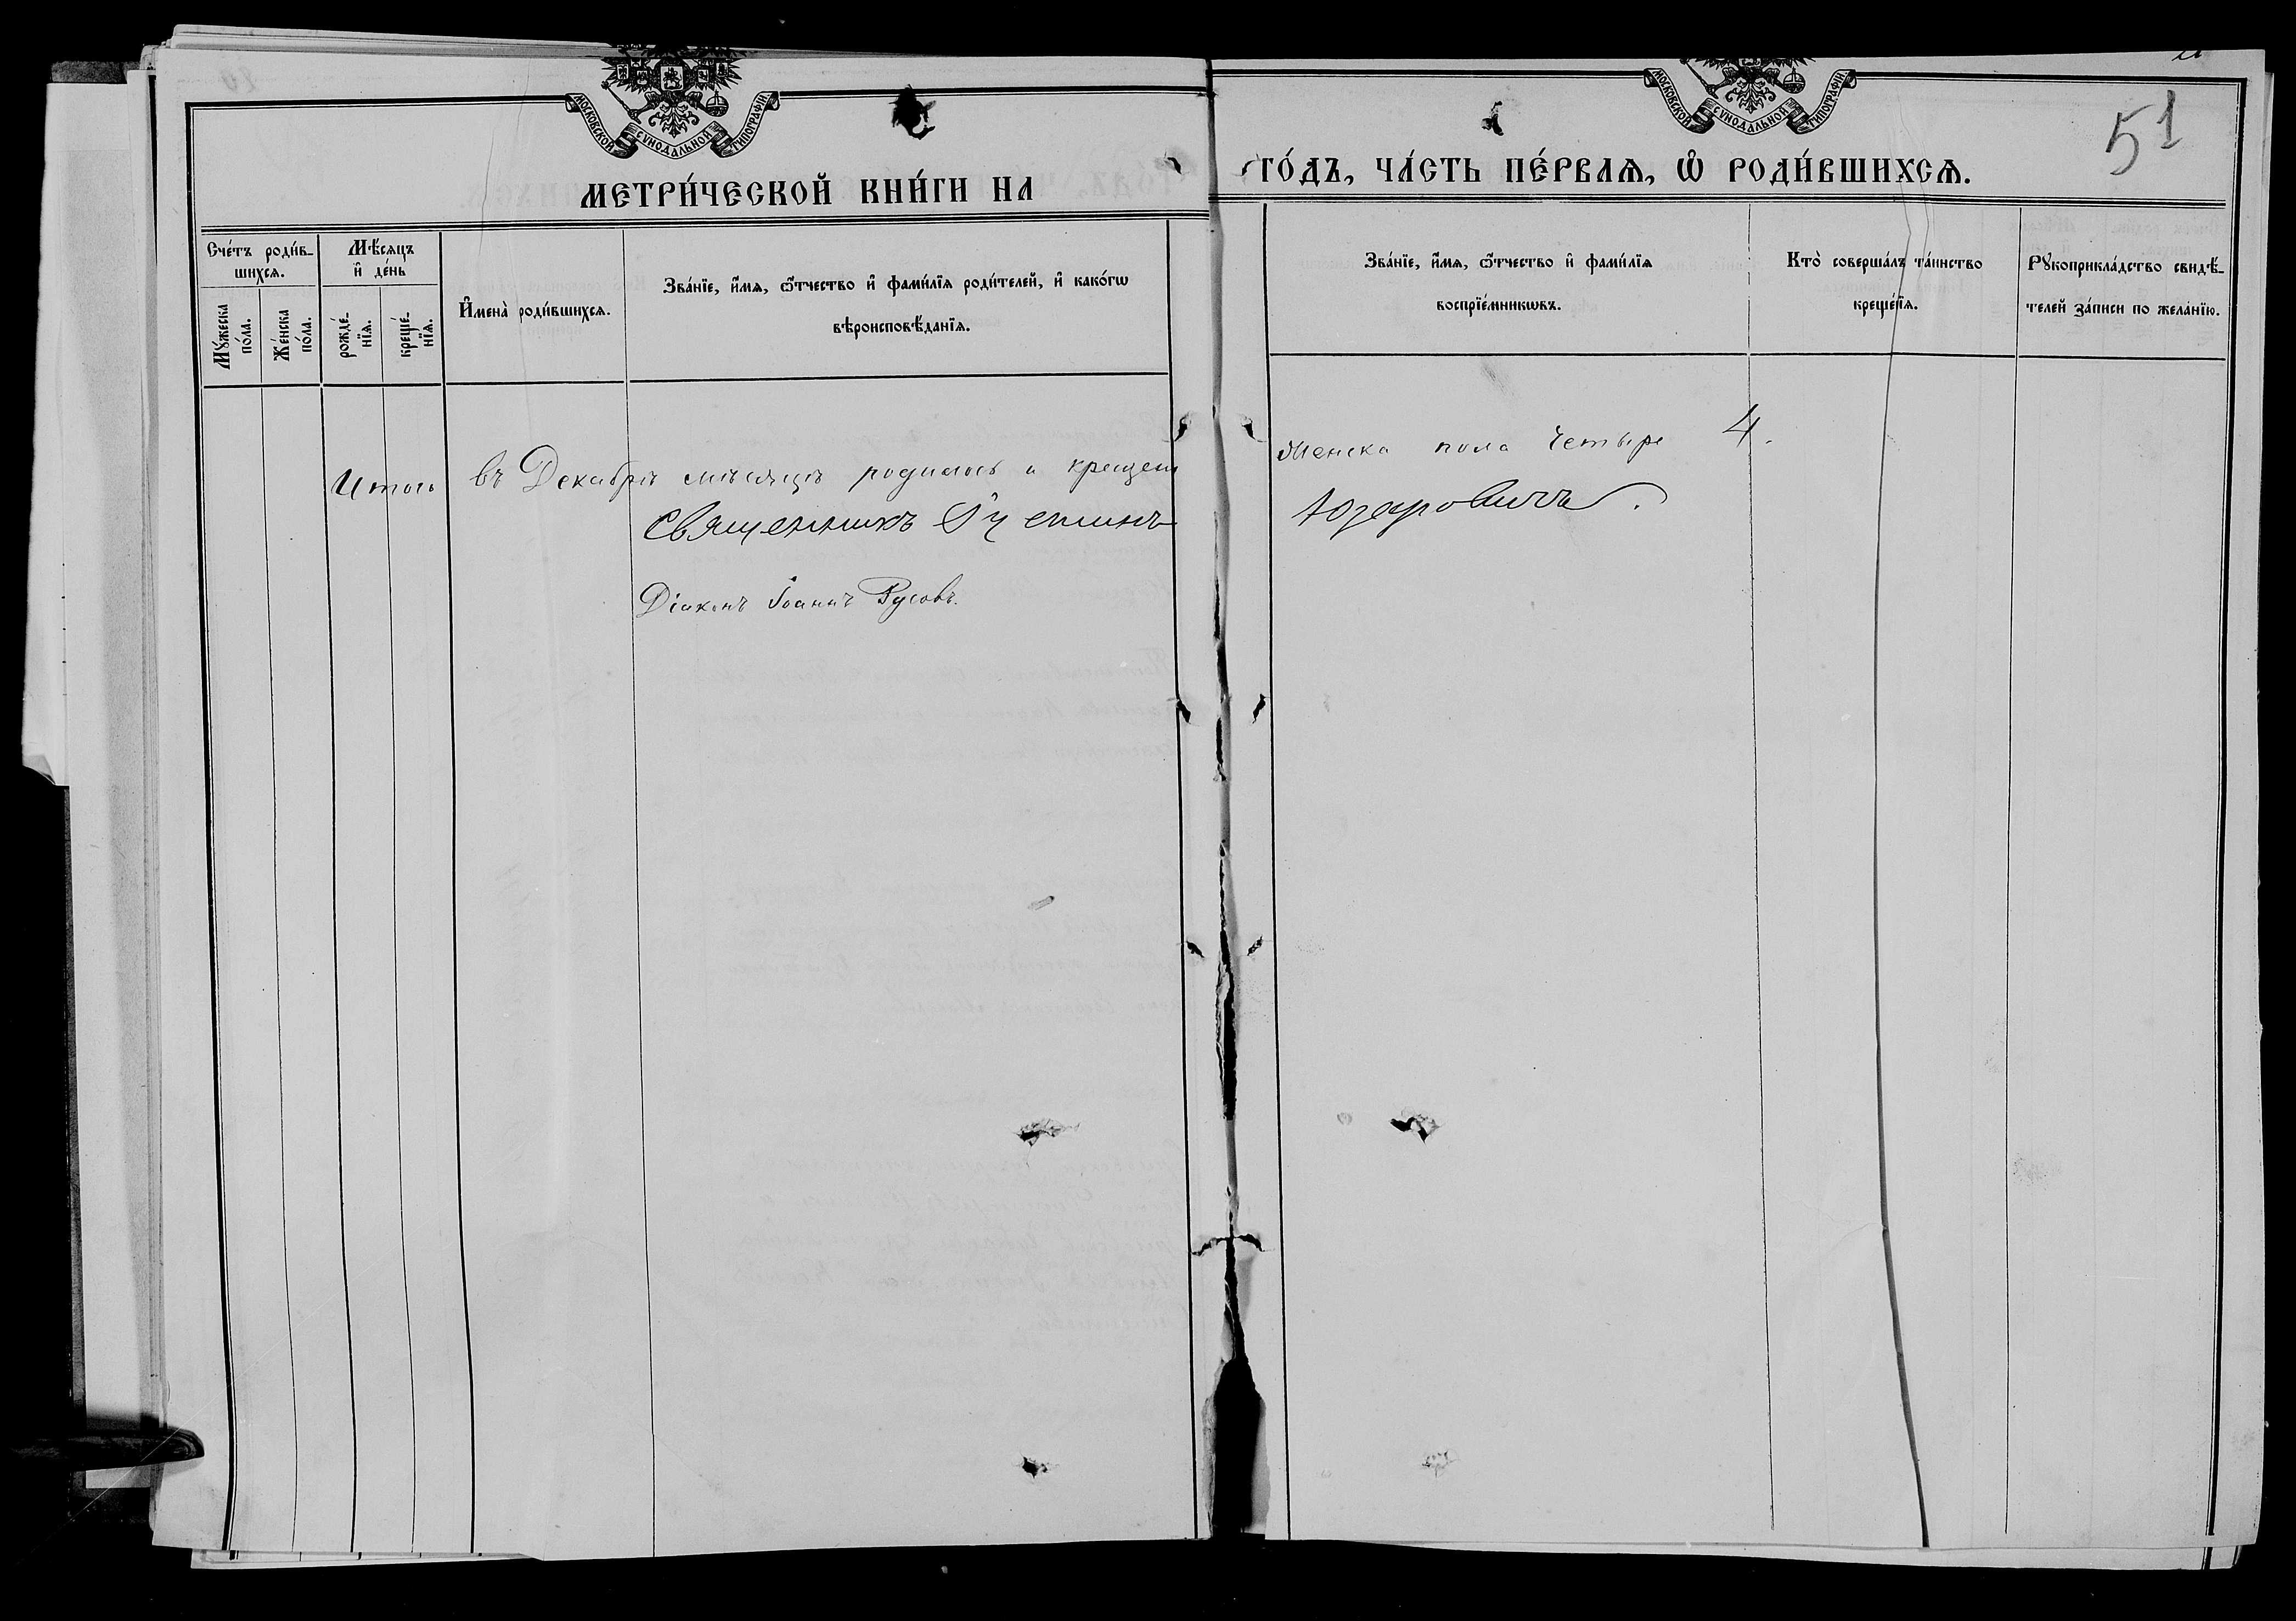 МОСКОВСКОЙ СѴНОДАЛЬНОЙ ТИПОГРАФІИ
МЕТРИ́ЧЕСКОЙ КНИ́ГИ НА
Сче́тъ роди́в-
шихсѧ.
Мѣ́сѧцъ
и҆ де́нь
Мꙋ́жеска
по́ла.
Же́нска
по́ла.
рожде́-
нїѧ.
креще́-
нїѧ.
И҆мена̀ роди́вшихсѧ.
Зва́нїе, и҆́мѧ, ѻ҆́тчество и҆ фами́лїѧ роди́телей, и҆ како́гѡ
вѣроисповѣ́данїѧ.
Итого въ Декабрѣ мѣсяцѣ родилось и крещено
Священникъ
Діаконъ Іоаннъ Русовъ.
МОСКОВСКОЙ СѴНОДАЛЬНОЙ ТИПОГРАФІИ
51
ГО́ДЪ, ЧА́СТЬ ПЕ́РВАѦ, Ѽ РОДИ́ВШИХСѦ.
Зва́нїе, и҆́мѧ, ѻ҆́тчество и҆ фами́лїѧ
воспрїе́мникѡвъ.
Кто̀ соверша́лъ та́инство
креще́нїѧ.
Рꙋкоприкла́дство свидѣ́-
телей за́писи по жела́нїю.
Женска пола Четыре 4.
Юзефовичъ.